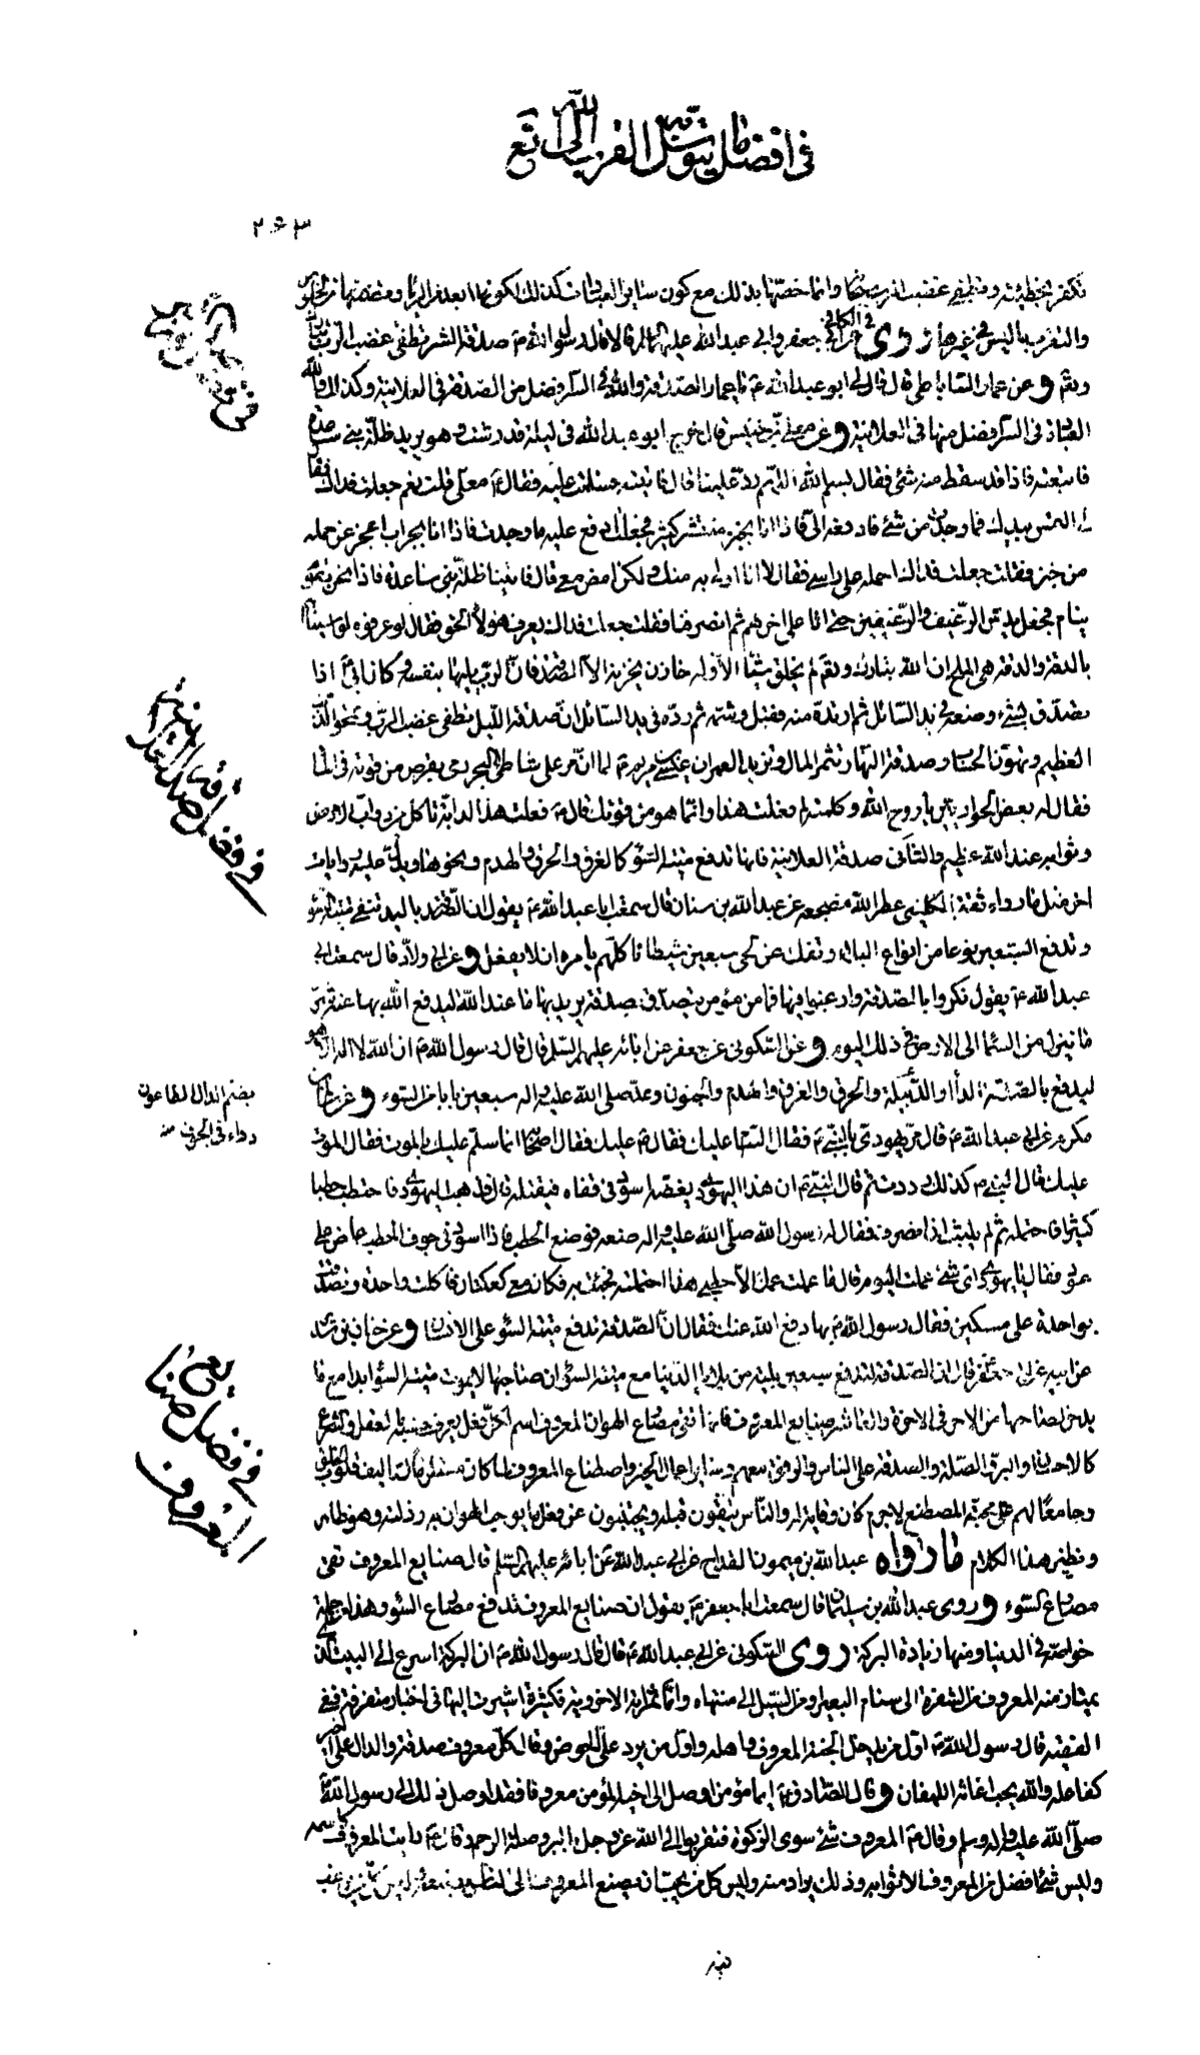 في افضل ما يتوسل به المتوسلون القرب الى الله تع
٢٦٣
تكفر الخطيئة وتطفئ غضب الرب وانما خصها بذلك مع كون ساير العبادات كذلك لكونها ابعد من الريا
والتقرب بما ليس في غيرها روى في الكافي عن ابي جعفر وابي عبد الله عليهما السلم قالا قال رسول الله ص صدقة السر تطفئ غضب الرب تبارك
وتع وعن عمار الساباطي قال قال لي ابو عبد الله ع يا عمار الصدقة والله في السر افضل من الصدقة في العلانية وكذلك والله
العبادة في السر افضل منها في العلانية وعن معلى بن خنيس قال خرج ابو عبد الله في ليلة قد رشت وهو يريد ظلة بني ساعدة
فاتبعته فاذا قد سقط منه شئ فقال بسم الله اللهم رد علينا قال فاتيته فسلمت عليه فقال ع معلى قلت نعم جعلت فداك فقال
لي التمس بيدك فما وجدت من شئ فادفعه الى فاذا انا بخبز منتشر كثير فجعلت ادفع عليه ما وجدت فاذا انا بجراب اعجز عن حمله
من خبز فقلت جعلت فداك احمله على راسي فقال لا انا اولى به منك ولكن امض معي قال فاتينا ظلة بني ساعدة فاذا نحن بقوم
ينام فجعل يدس الرغيف والرغيفين حتى اتا على اخرهم ثم انصرفنا فقلت جعلت فداك يعرف هؤلاء الحق فقال لو عرفوه لواسيناهم
بالدقة والدقة هي الملح ان الله تبارك وتع لم يخلق شيئا الا وله خازن يخزنه الا الصدقة فان الرب يليها بنفسه وكان ابي اذا
تصدق بشئ وضعه في يد السائل ثم ارتده منه فقبله وشمه ثم رده في يد السائل ان صدقة الليل تطفئ غضب الرب وتمحو الذنب
العظيم وتهون الحساب وصدقة النهار تثمر المال وتزيد العمر ان عيسى بن مريم ع لما ان مر على شاطئ البحر رمى بقرص من قوته في الماء
فقال له بعض الحواريين يا روح الله وكلمته لم فعلت هذا وانما هو من قوتك قال ع فعلت هذا لدابة تاكله من دواب الارض
وثوابه عند الله عظيم والثانى صدقة العلانية فانها تدفع ميتة السوء كالغرق والحرق والهدم ونحوها ويدل عليه روايات
اخر مثل ما رواه ثقة الكليني عطر الله مضجعه عن عبد الله بن سنان قال سمعت ابا عبد الله ع يقول ان الصدقة باليد تنفي ميتة السوء
وتدفع السبعين نوعا من انواع البلاء وتفك عن لحى سبعين شيطانا كلهم يامره ان لا يفعل وعن ابي ولاد قال سمعت ابا
عبد الله ع يقول بكروا بالصدقة وارغبوا فيها فما من مؤمن يتصدق بصدقة يريد بها ما عند الله ليدفع الله بها عنه شر
ما ينزل من السما الى الارض في ذلك اليوم وعن السكونى عن جعفر عن ابائه عليهم السلم قال قال رسول الله ص ان الله لا اله الا هو
ليدفع بالصدقة الداء والدبيلة والحرق والغرق والهدم والجنون وعد صلى الله عليه واله سبعين بابا من السوء وعن سالم بن
مكرم عن ابي عبد الله ع قال مر يهودى بالنبي ص فقال السام عليك فقال ص عليك فقال اصحابه انما سلم عليك بالموت فقال الموت
عليك قال النبي ص كذلك رددت ثم قال النبي ص ان هذا اليهودي يعضه اسود في قفاه فيقتله قال فذهب اليهودي فاحتطب حطبا
كثيرا فاحتمله ثم لم يلبث اذا انصرف فقال له رسول الله صلى الله عليه واله ضعه فوضع الحطب فاذا اسود في جوف الحطب عاض على
عود فقال يا يهودي اى شئ عملت اليوم قال ما عملت عملا الا حطبي هذا احتملته فجئت به وكان معي كعكتان فاكلت واحدة وتصدقت
بواحدة على مسكين فقال رسول الله ص بها دفع الله عنك فقال ان الصدقة تدفع ميتة السوء على الانسان وعن حنان بن سدير
عن ابيه عن ابي جعفر ع قال ان الصدقة لتدفع سبعين بلية من بلايا الدنيا مع ميتة السوء ان صاحبها لا يموت ميتة السوء ابدا مع ما
يدخر لصاحبها من الاجر في الاخرة والعاشر صنايع المعروف فانها تقي مصارع الهوان المعروف اسم لكل فعل يعرف حسنه بالعقل والشرع
كالاحسان والبر والصلة والصدقة على الناس والرفق معهم وساير اعمال الخير واصطناع المعروف لما كان مستلزما لتاليف قلوب الخلق
وجامعا لهم على محبة المصطنع لا جرم كان وقاية له والناس يتقون قبله ويجتنبون عن فعل ما يوجب الهوان به وذلته وهو ظاهر
ونظير هذا الكلام ما رواه عبد الله بن ميمون القداح عن ابي عبد الله عن ابائه عليهم السلم قال صنايع المعروف تقى
مصارع السوء وروى عبد الله بن سليمان قال سمعت ابا جعفر ع يقول ان صنايع المعروف تدفع مصارع السوء وهذا من جملة
خواصه في الدنيا ومنها زيادة البركة روى السكونى عن ابي عبد الله ع قال قال رسول الله ص ان البركة اسرع الى البيت الذي
يمتار منه المعروف من الشفرة الى سنام البعير او من السيل الى منتهاه واما ثمراته الاخروية فكثيرة اشيرت اليها في اخبار متفرقة ففي
الفقيه قال رسول الله ص اول من يدخل الجنة المعروف واهله واول من يرد على الحوض وقال كل معروف صدقة والدال على الخير
كفاعله والله يحب اغاثة اللهفان وقال الصادق ع ايما مؤمن اوصل الى اخيه المؤمن معروفا فقد اوصل ذلك الى رسول الله
صلى الله عليه واله وسلم وقال ع المعروف شئ سوى الزكوة فتقربوا الى الله عز وجل بالبر وصلة الرحم وقال ع رايت المعروف كاسمه
وليس شئ افضل من المعروف الا ثوابه وذلك يراد منه وليس كل من يحب ان يصنع المعروف الى الناس يصنعه وليس كل من يرغب
فيه
في فضل صدقة
في فضل صدقة العلانية
بضم الدال الطاعون
وداء في الجوف منه
في فضل صنايع
المعروف